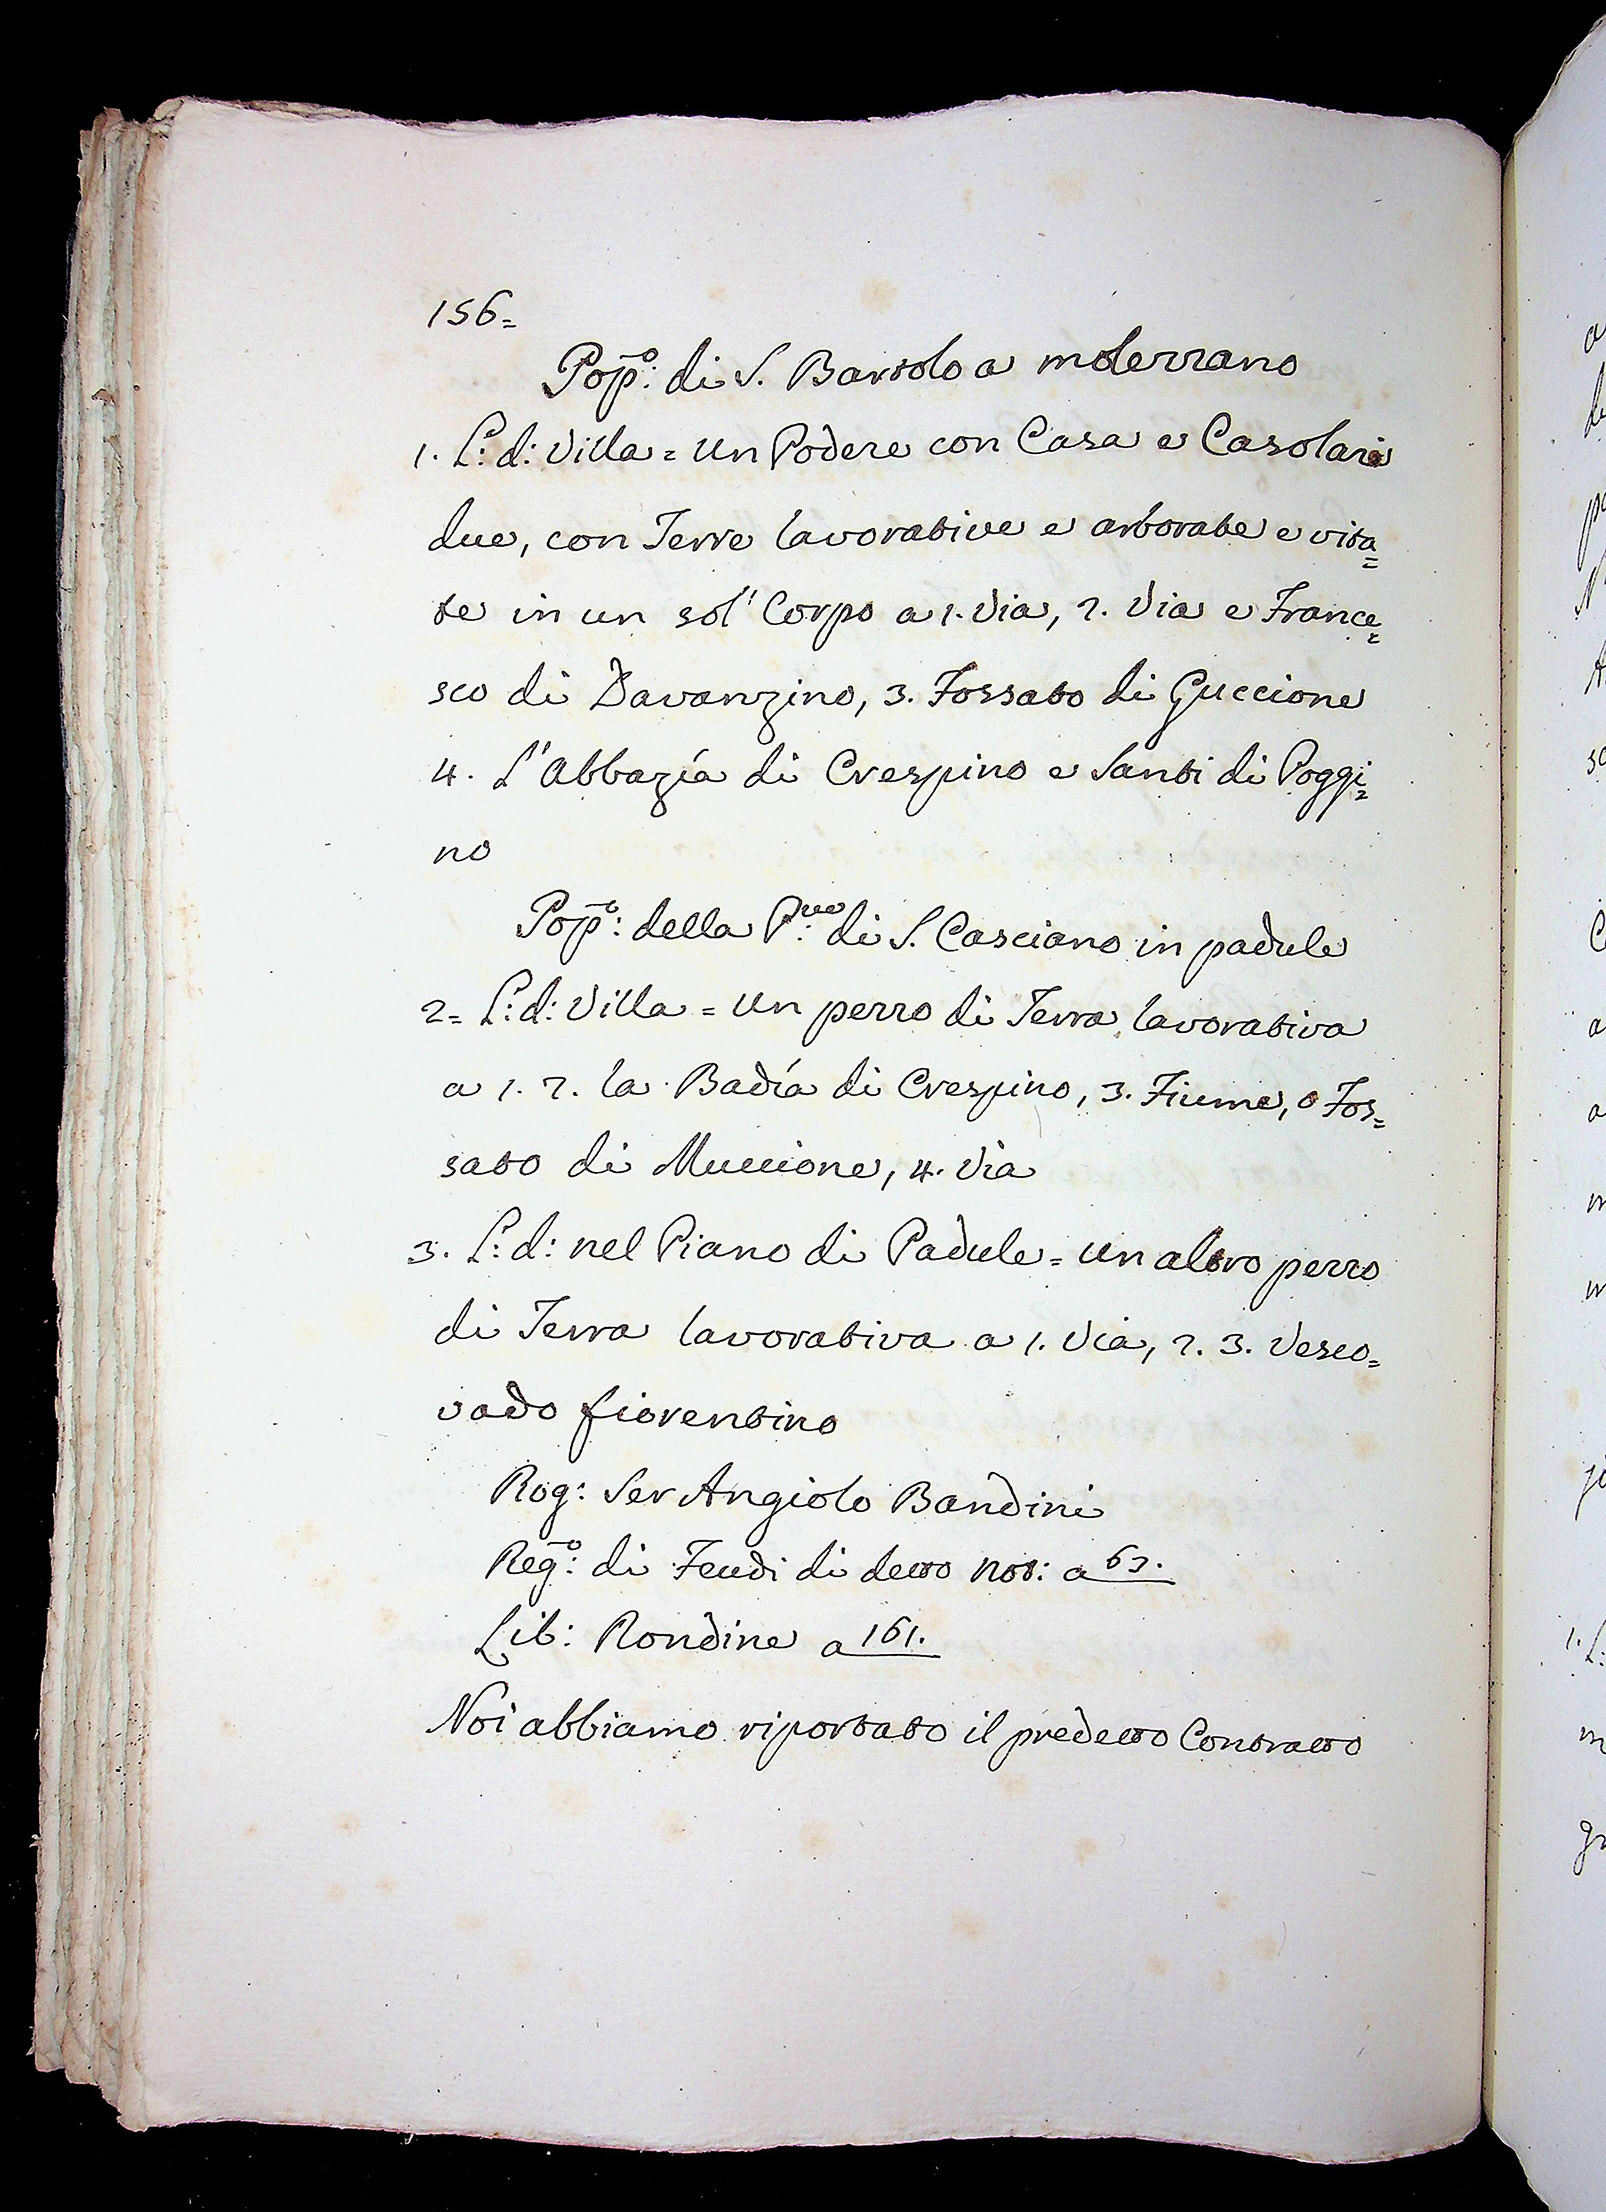 156=
Pop̄o: di S. Bartolo a molezzano
1. L: d: Villa = Un Podere con Casa e Casolari
due, con Terre lavorative e arborate e vita=
te in un sol' Corpo a 1. Via, 2. Via e France=
sco di Davanzino, 3. Fossato di Guccione
4. L'Abbazía di Crespino e Santi di Poggi=
no
Pop̄o: della P.ve di S. Casciano in padule
2= L: d: Villa = Un pezzo di Terra lavorativa
a 1. 2. la Badía di Crespino, 3. Fiume, o Fos=
sato di Muccione, 4. Via
3. L: d: nel Piano di Padule = Un altro pezzo
di Terra lavorativa a 1. Via, 2. 3. Vesco=
vado fiorentino
Rog: Ser Angiolo Bandini
Reg̅o: di Feudi di detto not: a 63.
Lib: Rondine a 161.
Noi abbiamo riportato il predetto Contratto